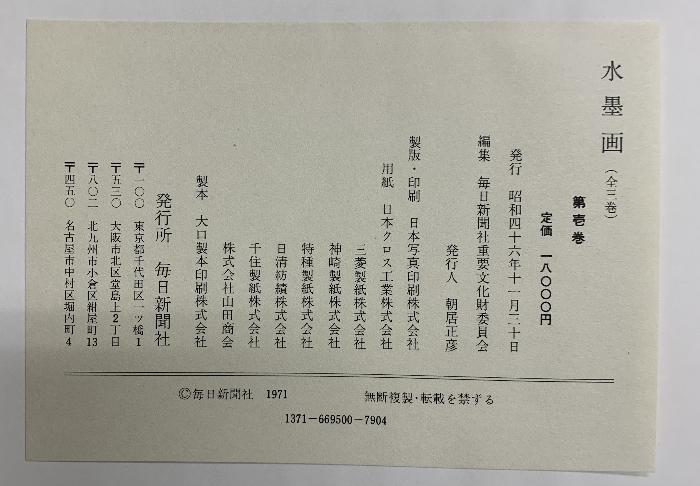 水墨画（全三巻）
第壱巻
定価　一八〇〇〇円
発行　昭和四十六年十一月三十日
編集　毎日新聞社重要文化財委員会
発行人　朝居正彦
製版・印刷　日本写真印刷株式会社
用紙　日本クロス工業株式会社
三菱製紙株式会社
神崎製紙株式会社
特種製紙株式会社
日清紡績株式会社
千住製紙株式会社
株式会社山田商会
製本　大口製本印刷株式会社
発行所　毎日新聞社
〒一〇〇　東京都千代田区一ッ橋1
〒五三〇　大阪市北区堂島上2丁目
〒八〇二　北九州市小倉区紺屋町13
〒四五〇　名古屋市中村区堀内町4
無断複製・転載を禁ずる
©毎日新聞社　1971
1371－669500－7904